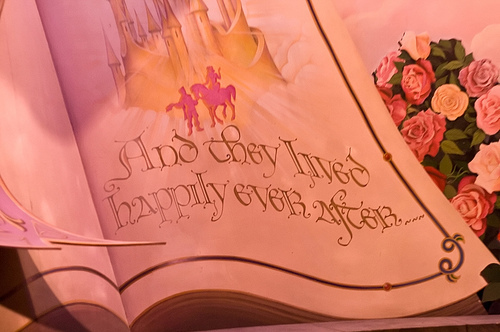 And they lived
happily ever after....